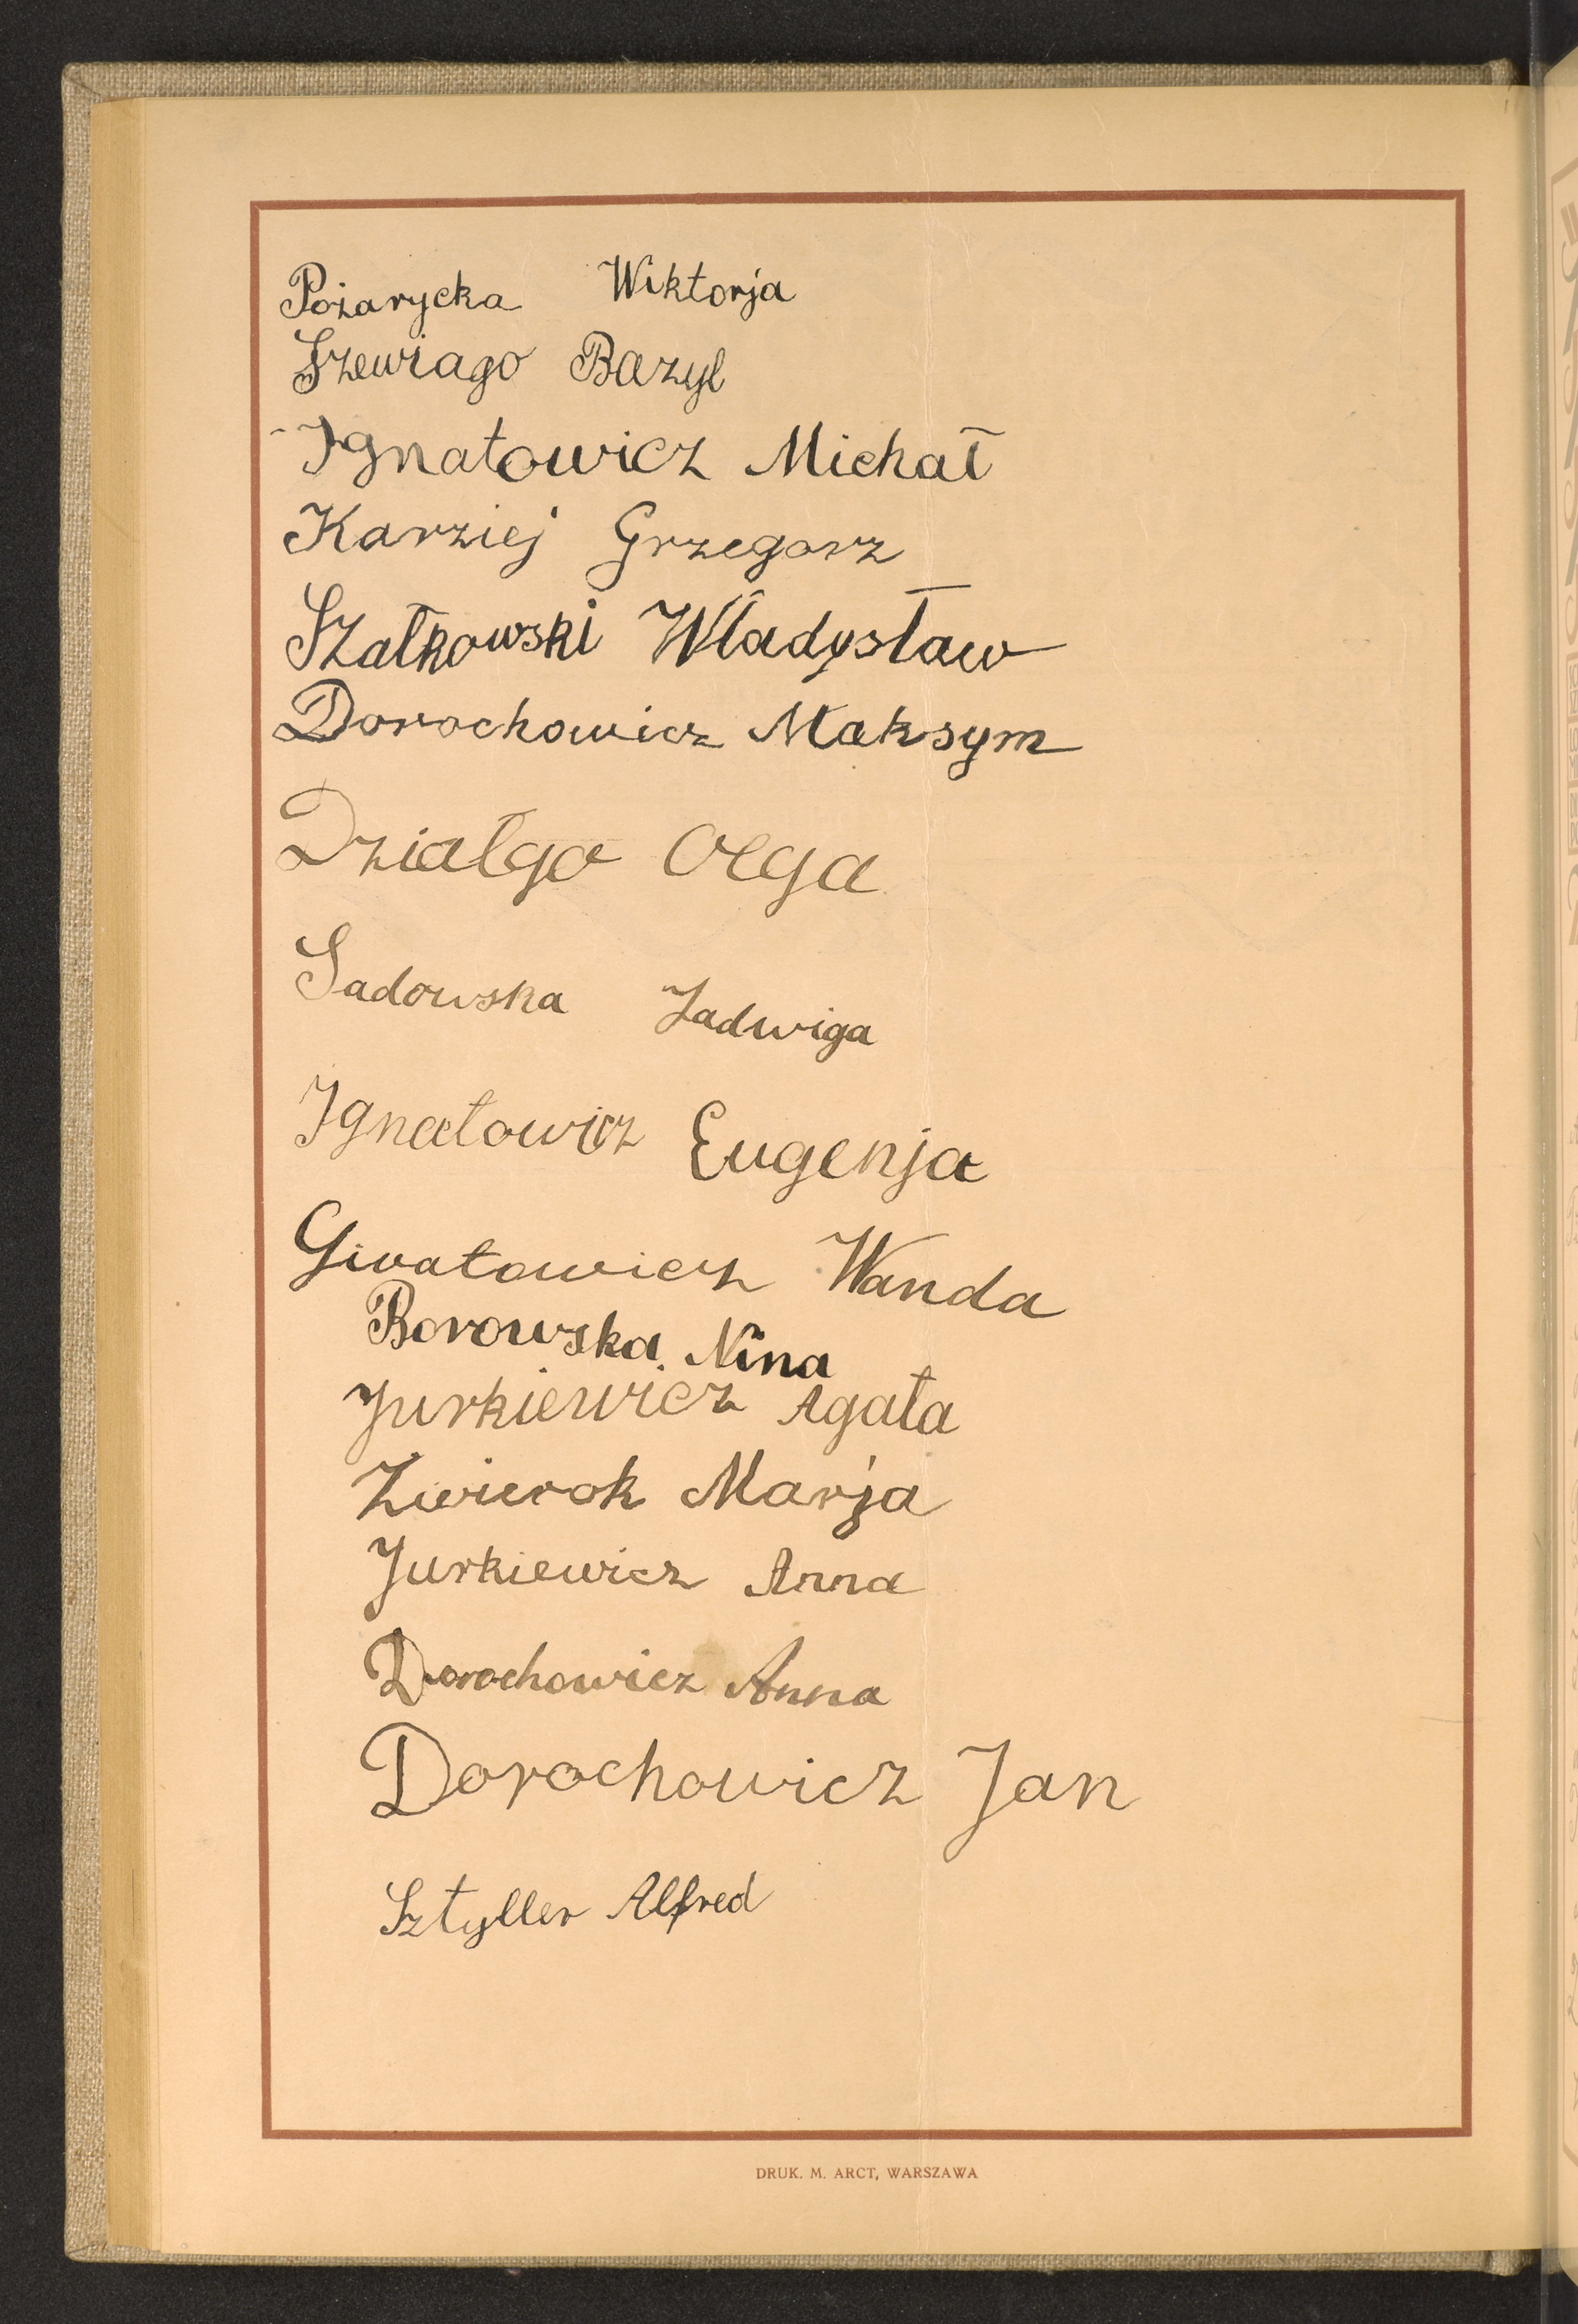 Pożarycka Wiktorja
Szewiago Bazyl
Ignatowicz Michał
Karziej Grzegorz
Szałkowski Władysław
Dorochowicz Maksym
Działgo Olga
Sadowska Jadwiga
Ignatowicz Eugenja
Giwatowicz Wanda
Borowska Nina
Jurkiewicz Agata
Zwierok Marja
Jurkiewicz Anna
Dorochowicz Anna
Dorochowicz Jan
Sztyller Alfred
DRUK. M. ARCT, WARSZAWA